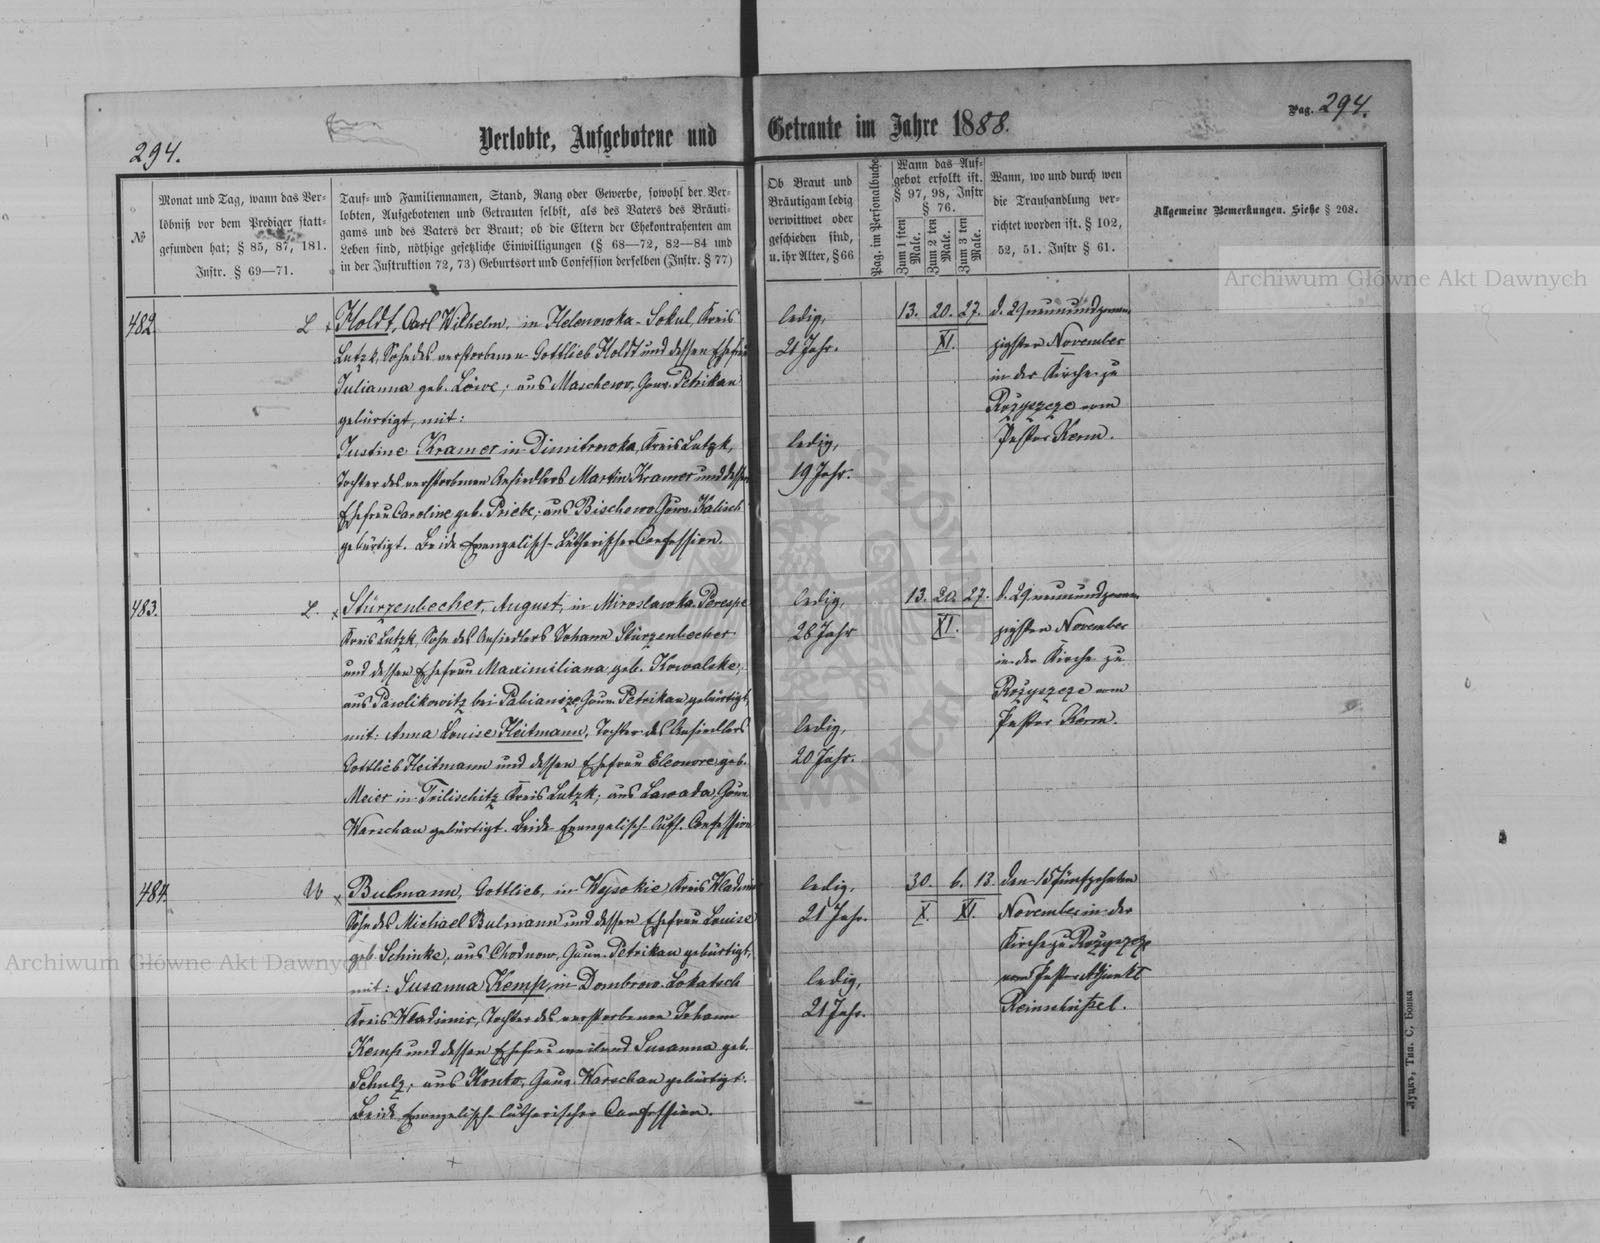 294.
Verlobte, Aufgebotene und Getraute im Jahre 1888.
Pag. 294.
№
Monat und Tag, wann das Ver-
löbniß vor dem Prediger statt-
gefunden hat; § 85, 87, 181.
Instr. § 69—71.
Tauf- und Familiennamen, Stand, Rang oder Gewerbe, sowohl der Ver-
lobten, Aufgebotenen und Getrauten selbst, als des Vaters des Bräuti-
gams und des Vaters der Braut; ob die Eltern der Ehekontrahenten am
Leben sind, nöthige gesetzliche Einwilligungen (§ 68—72, 82—84 und
in der Instruktion 72, 73) Geburtsort und Confession derselben (Instr. § 77)
Ob Braut und
Bräutigam ledig
verwittwet oder
geschieden sind,
u. ihr Alter, § 66
Pag. im Personalbuche
Wann das Auf-
gebot erfolkt ist.
§ 97, 98, Instr
§ 76.
Zum 1 sten
Male.
Zum 2 ten
Male.
Zum 3 ten
Male.
Wann, wo und durch wen
die Trauhandlung ver-
richtet worden ist. § 102,
52, 51. Instr § 61.
Allgemeine Bemerkungen. Siehe § 208.
482
L
Holdt, Carl Wilhelm, in Helenowka-Sokul, Kreis
Lutzk, Sohn des verstorbenen Gottlieb Holdt und dessen Ehefrau
Julianna geb. Löwe; aus Maschewo, Gouv. Petrikau
gebürtigt, mit:
Justine Kramer in Dimitrowka, Kreis Lutzk,
Tochter des verstorbenen Ansiedlers Martin Kramer und dessen
Ehefrau Caroline geb. Priebe; aus Bischewo Gouv. Kalisch
gebürtigt. Beide Evangelisch-Lutherischer Confession.
ledig,
21 Jahr.
ledig,
19 Jahr.
13. 20. 27.
XI.
d. 29 neunundzwan-
zigsten November
in der Kirche zu
Rożyszcze vom
Pastor Kerm.
483.
L.
Stürzenbecher, August, in Miroslawka-Perespe
Kreis Lutzk, Sohn des Ansiedlers Johann Stürzenbecher
und dessen Ehefrau Maximiliana geb. Kowalske,
aus Pawlikowitz bei Pabianize, Gouv. Petrikau gebürtigt,
mit: Anna Louise Heitmann, Tochter des Ansiedlers
Gottlieb Heitmann und dessen Ehefrau Eleonore geb.
Meier in Trilischitz Kreis Lutzk; aus Lawada, Gouv.
Warschau gebürtigt. Beide Evangelisch-Luth. Confession
ledig,
26 Jahr
ledig,
20 Jahr.
13. 20. 27.
XI.
d. 29 neunundzwan-
zigsten November
in der Kirche zu
Rożyszcze vom
Pastor Kerm.
484.
W
Bulmann, Gottlieb, in Wysokie Kreis Wladimir
Sohn des Michael Bulmann und dessen Ehefrau Louise
geb. Schinke, aus Chodnow, Gouv. Petrikau gebürtigt,
mit: Susanna Kemp, in Dombrow-Lokatsch
Kreis Wladimir, Tochter des verstorbenen Johann
Kemp und dessen Ehefrau weiland Susanna geb.
Schulz, aus Konto, Gouv. Warschau gebürtigt.
Beide Evangelisch-lutherischer Confession.
ledig,
21 Jahr.
ledig,
21 Jahr.
30. 6. 13.
X. XI.
den 15 fünfzehnten
November in der
Kirche zu Rożyszcze
vom Pastor-Adjunkt
Луцкъ, Тип. С. Бонка
Archiwum Główne Akt Dawnych
Archiwum Główne Akt Dawnych